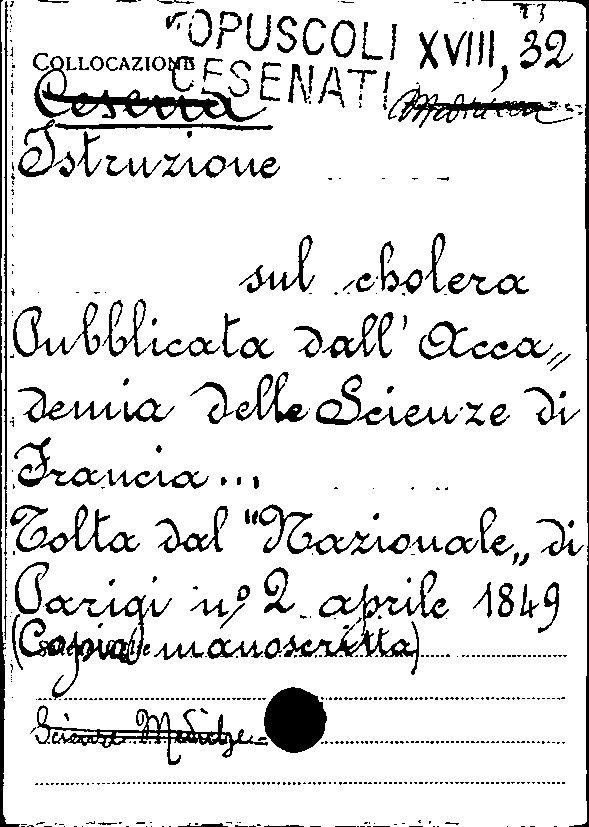 OPUSCOLI XVIII, 32
COLLOCAZIONE
CESENATI
Cesena
Istruzione
sul cholera
Pubblicata dall' Acca„
demia delle Scienze di
Francia...
Tolta dal "Nazionale„ di
Parigi n.º 2 aprile 1849
(Copia manoscritta)
Scienze Mediche